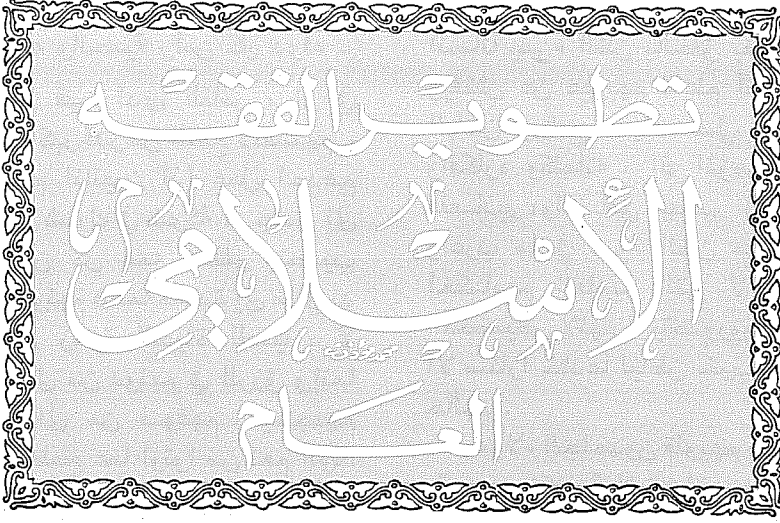 تطوير الفقه
الإسلامي
العام